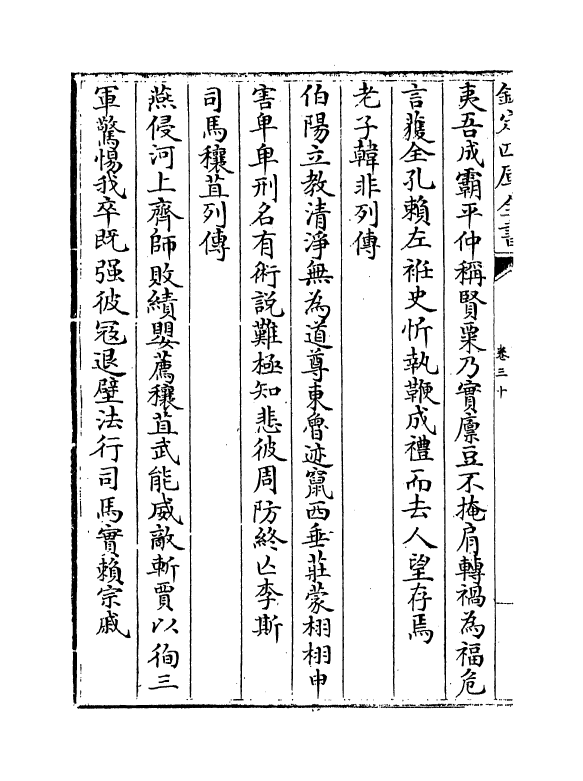 欽定四庫全書
卷三十
夷吾成霸平仲稱賢粟乃實廪豆不掩肩轉禍為福危
言獲全孔賴左袵史忻執鞭成禮而去人望存焉
老子韓非列傳
伯陽立教清淨無為道尊東魯迹竄西垂莊蒙栩栩申
害卑卑刑名有術說難極知悲彼周防終亡李斯
司馬穰苴列傳
燕侵河上齊師敗績嬰薦穰苴武能威敵斬賈以徇三
軍驚惕我卒既强彼冦退壁法行司馬實賴宗戚